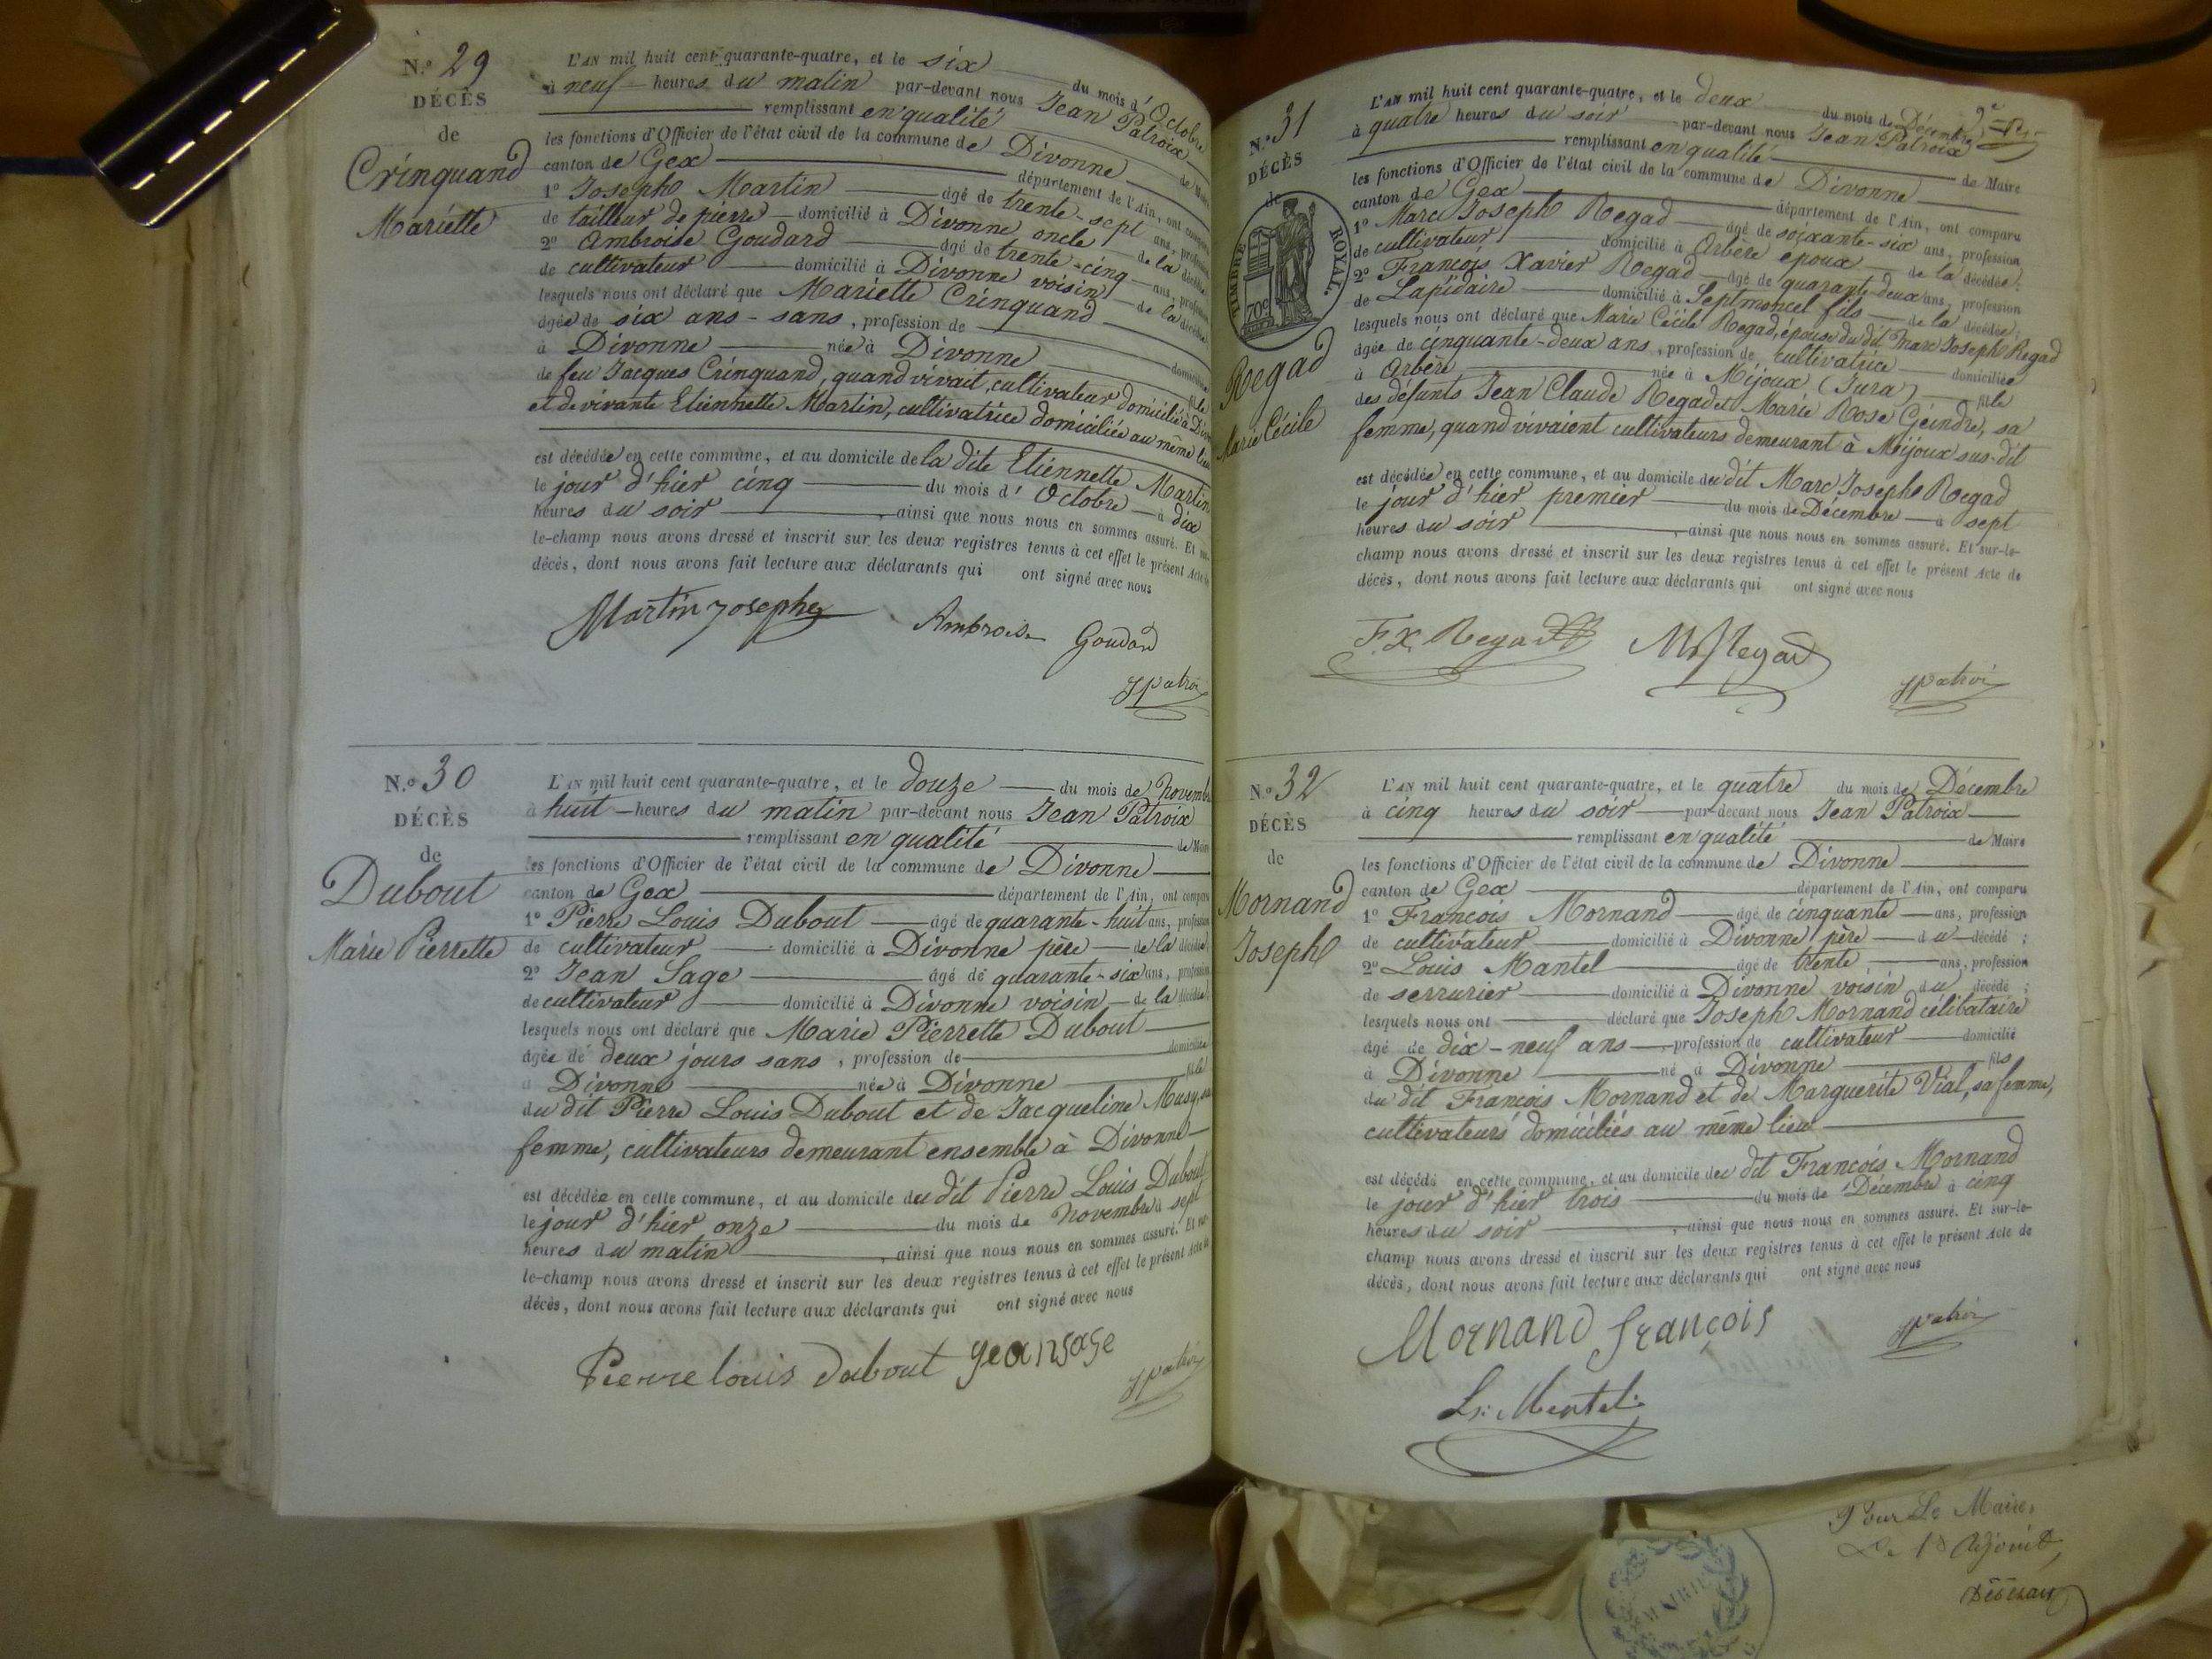 N.º 29
DÉCÈS
de
Crinquand
Mariette
L'AN mil huit cent quarante-quatre, et le six du mois d'Octobre
à neuf heures du matin par-devant nous Jean Patroix
remplissant en qualité de Maire
les fonctions d'Officier de l'état civil de la commune de Divonne
canton de Gex département de l'Ain, ont comparu
1º Joseph Martin âgé de trente-sept ans, profession
de tailleur de pierre domicilié à Divonne oncle de la décédée
2º Ambroise Goudard âgé de trente-cinq ans, profession
de cultivateur domicilié à Divonne voisin de la décédée
lesquels nous ont déclaré que Mariette Crinquand
âgée de six ans - sans, profession de domiciliée
à Divonne née à Divonne fille
de feu Jacques Crinquand, quand vivait, cultivateur domicilié à
et de vivante Etiennette Martin, cultivatrice domiciliée au même lieu
est décédée en cette commune, et au domicile de la dite Etiennette Martin
le jour d'hier cinq du mois d'Octobre à dix
heures du soir, ainsi que nous nous en sommes assuré. Et
le-champ nous avons dressé et inscrit sur les deux registres tenus à cet effet le présent Acte de
décès, dont nous avons fait lecture aux déclarants qui ont signé avec nous
Martin Joseph Ambroise Goudard
JPatroi
N.º 30
DÉCÈS
de
Dubout
Marie Pierrette
L'AN mil huit cent quarante-quatre, et le douze du mois de Novembre
à huit heures du matin par-devant nous Jean Patroix
remplissant en qualité de Maire
les fonctions d'Officier de l'état civil de la commune de Divonne
canton de Gex département de l'Ain, ont comparu
1º Pierre Louis Dubout âgé de quarante-huit ans, profession
de cultivateur domicilié à Divonne père de la décédée
2º Jean Sage âgé de quarante-six ans, profession
de cultivateur domicilié à Divonne voisin de la décédée
lesquels nous ont déclaré que Marie Pierrette Dubout
âgée de deux jours sans, profession de domiciliée
à Divonne née à Divonne fille
du dit Pierre Louis Dubout et de Jacqueline Musy, sa
femme, cultivateurs demeurant ensemble à Divonne
est décédée en cette commune, et au domicile du dit Pierre Louis Dubout
le jour d'hier onze du mois de Novembre à sept
heures du matin, ainsi que nous nous en sommes assuré. Et sur-
le-champ nous avons dressé et inscrit sur les deux registres tenus à cet effet le présent Acte de
décès, dont nous avons fait lecture aux déclarants qui ont signé avec nous
Pierre louis Dubout geansage
JPatroi
N.º 31
DÉCÈS
de
TIMBRE ROYAL.
70c
Regad
Marie Cécile
9e
L'AN mil huit cent quarante-quatre, et le deux du mois de Décembre
à quatre heures du soir par-devant nous Jean Patroix
remplissant en qualité de Maire
les fonctions d'Officier de l'état civil de la commune de Divonne
canton de Gex département de l'Ain, ont comparu
1º Marc Joseph Regad âgé de soixante-six ans, profession
de cultivateur domicilié à Arbère époux de la décédée;
2º François Xavier Regad âgé de quarante-deux ans, profession
de Lapidaire domicilié à Septmoncel fils de la décédée;
lesquels nous ont déclaré que Marie Cécile Regad, épouse du dit Marc Joseph Regad
âgée de cinquante-deux ans, profession de cultivatrice domiciliée
à Arbère née à Mijoux (Jura) fille
des défunts Jean Claude Regad et Marie Rose Geindre, sa
femme, quand vivaient cultivateurs demeurant à Mijoux sus-dit
est décédée en cette commune, et au domicile du dit Marc Joseph Regad
le jour d'hier premier du mois de Décembre à sept
heures du soir, ainsi que nous nous en sommes assuré. Et sur-le-
champ nous avons dressé et inscrit sur les deux registres tenus à cet effet le présent Acte de
décès, dont nous avons fait lecture aux déclarants qui ont signé avec nous
F.X. Regad MJRegad
JPatroi
N.º 32
DÉCÈS
de
Mornand
Joseph
L'AN mil huit cent quarante-quatre, et le quatre du mois de Décembre
à cinq heures du soir par-devant nous Jean Patroix
remplissant en qualité de Maire
les fonctions d'Officier de l'état civil de la commune de Divonne
canton de Gex département de l'Ain, ont comparu
1º François Mornand âgé de cinquante ans, profession
de cultivateur domicilié à Divonne père du décédé;
2º Louis Mantel âgé de trente, ans, profession
de serrurier domicilié à Divonne voisin du décédé;
lesquels nous ont déclaré que Joseph Mornand célibataire
âgé de dix-neuf ans, profession de cultivateur domicilié
à Divonne né à Divonne fils
du dit François Mornand et de Marguerite Vial, sa femme,
cultivateurs domiciliés au même lieu
est décédé en cette commune, et au domicile du dit François Mornand
le jour d'hier trois du mois de Décembre à cinq
heures du soir, ainsi que nous nous en sommes assuré. Et sur-le-
champ nous avons dressé et inscrit sur les deux registres tenus à cet effet le présent Acte de
décès, dont nous avons fait lecture aux déclarants qui ont signé avec nous
Mornand françois JPatroi
Ls Mentel
Pour Le Maire,
Le 1er Adjoint,
MAIRIE